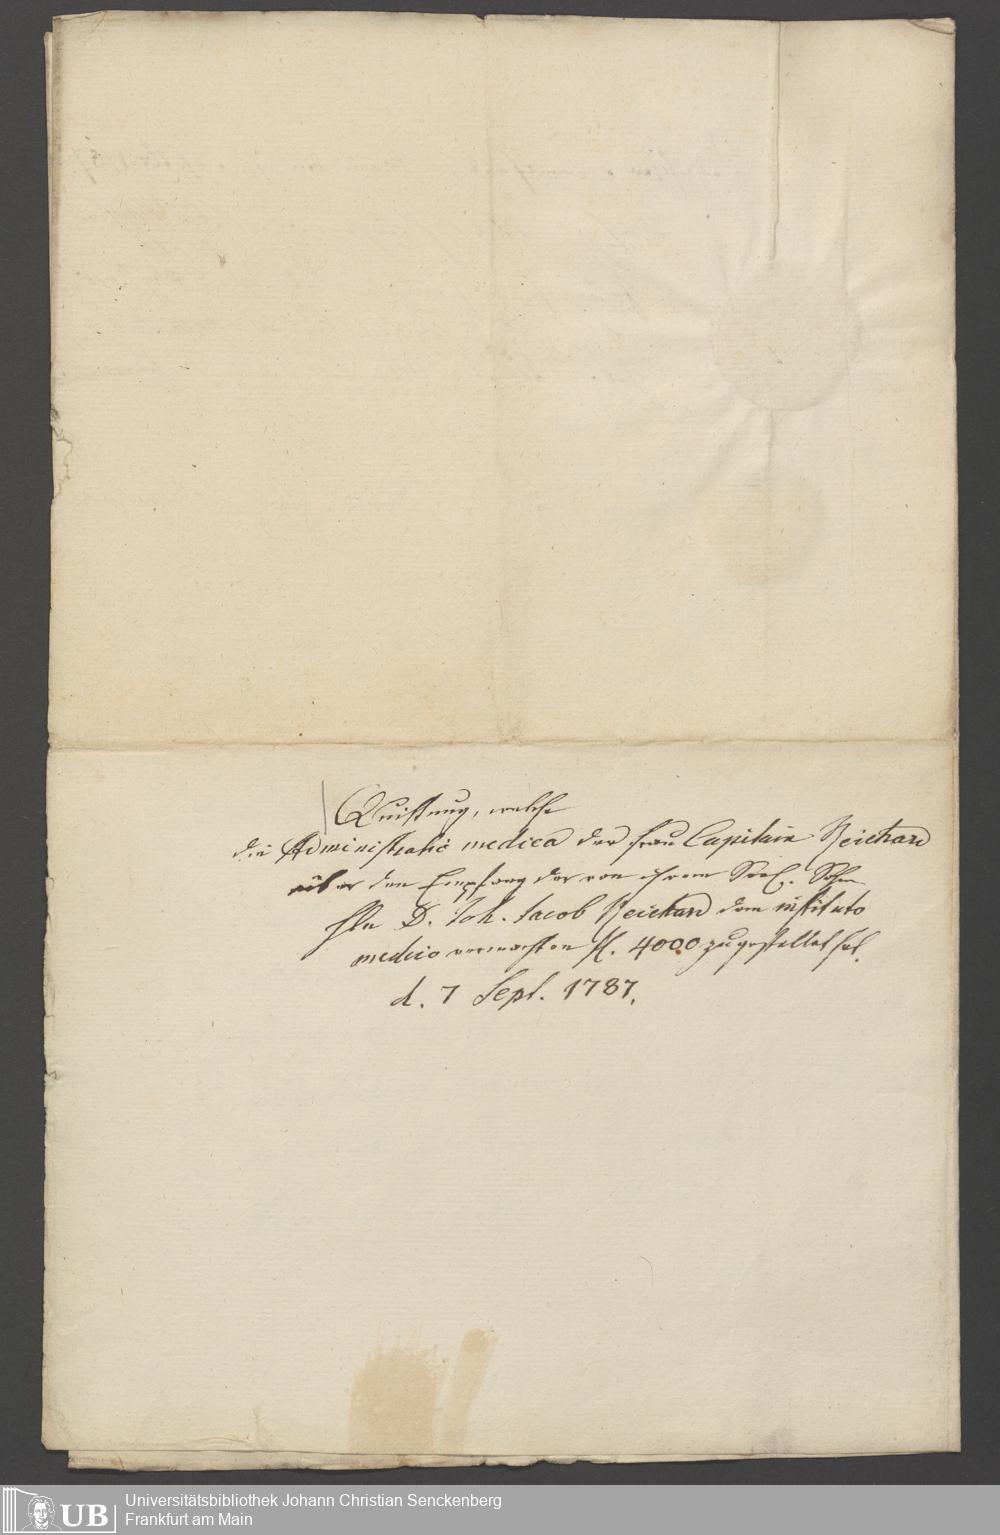 Quittung, welche
die Administratio medica der Frau Capitain Reichard
über den Empfang der von ihrem Seel. Sohn
Hn D. Joh. Jacob Reichard dem instituto
medico vermachten fl. 4000 zugestellet hat.
d. 7 Sept. 1787.
UB
Universitätsbibliothek Johann Christian Senckenberg
Frankfurt am Main